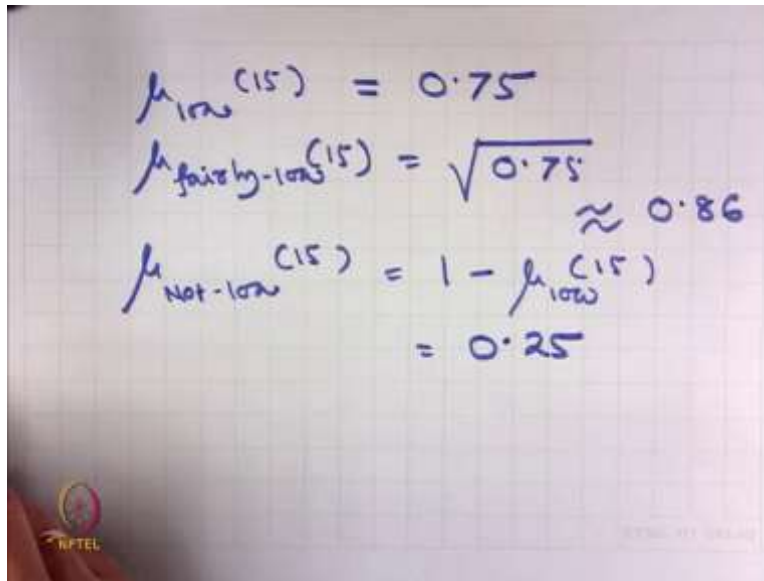 μ_low (15) = 0.75
μ_fairly-low (15) = √0.75
≈ 0.86
μ_Not-low (15) = 1 - μ_low (15)
= 0.25
NPTEL